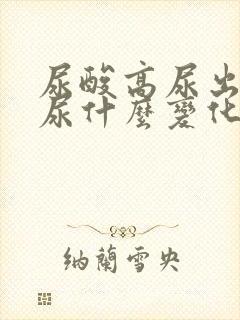 尿酸高尿出
尿什麽變化
納蘭雪央